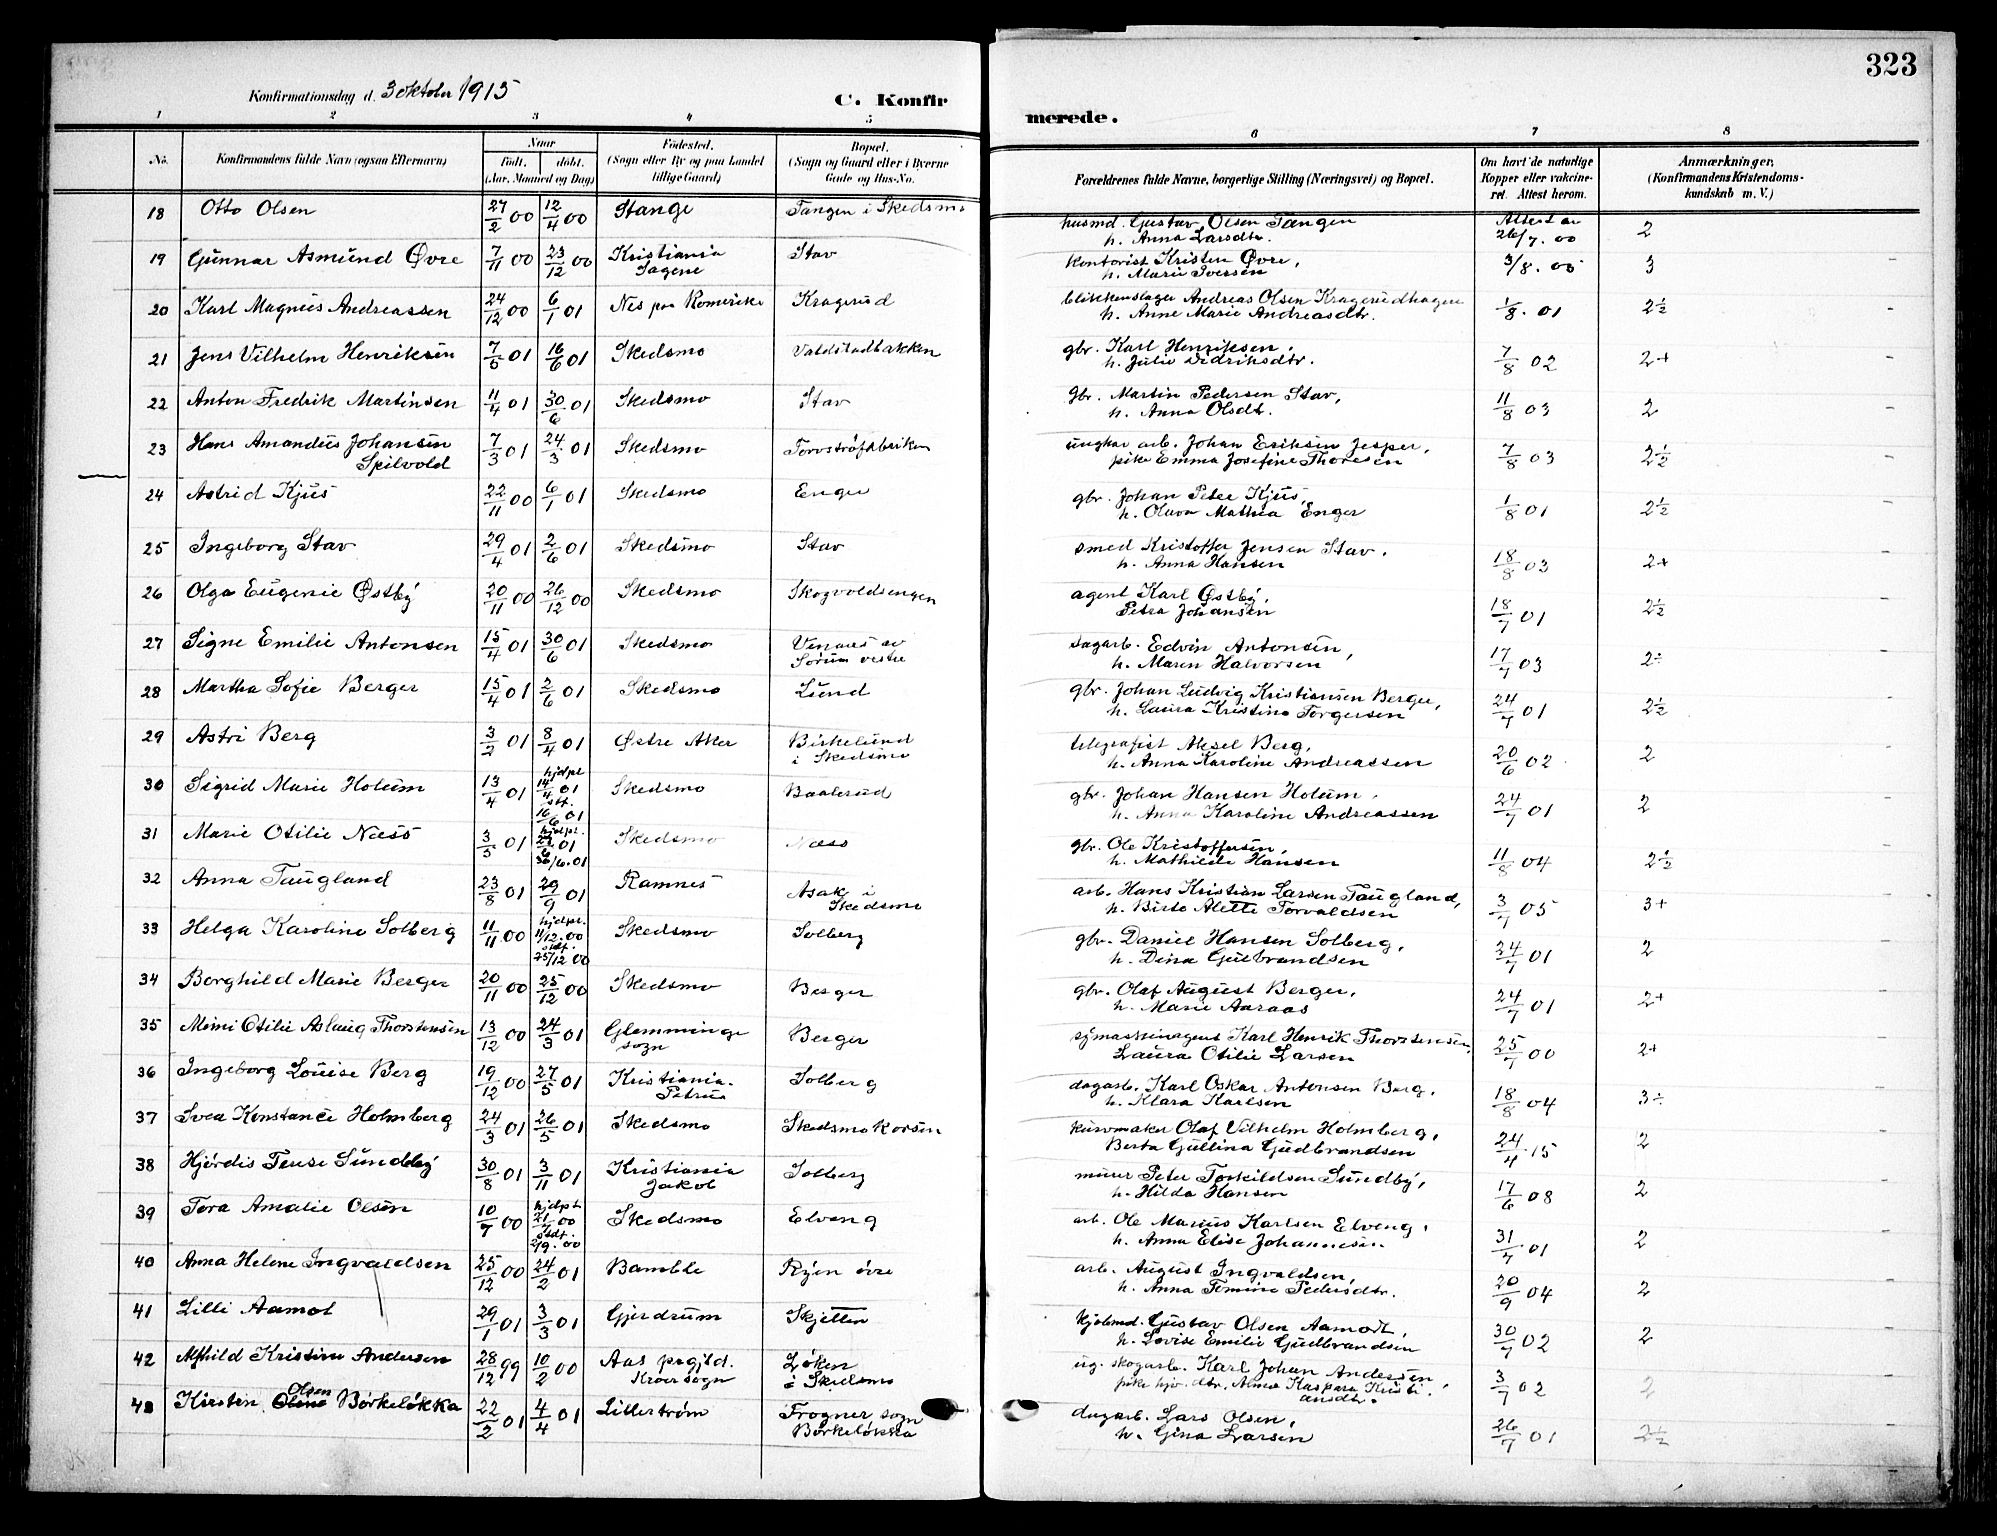 323
Konfirmationsdag d. 3 oktober 1915
C. Konfir
merede.
1 2 3 4 5 6 7 8
No. Konfirmandens fulde Navn (ogsaa Efternavn) Naar født. døbt. (Aar, Maaned og Dag) Fødested. (Sogn eller By og paa Landet tillige Gaard) Bopæl. (Sogn og Gaard eller i Byerne Gade og Hus-No. Forældrenes fulde Navne, borgerlige Stilling (Næringsvei) og Bopæl. Om havt de naturlige Kopper eller vakcineret. Attest herom. Anmærkninger, (Konfirmandens Kristendomskundskab m. V.)
18 Otto Olsen 27/2 00 12/4 00 Stange Tangen i Skedsmo husmd. Gustav Olsen Tangen Attest av
h. Anna Larsdtr. 26/7. 00 2
19 Gunnar Asmund Øvre 7/11 00 23/12 00 Kristiania Stav kontorist Kristen Øvre, 3/8. 05 3
Sagene h. Marie Iversen
20 Karl Magnus Andreassen 24/12 00 6/1 01 Nes paa Romerike Kragerud blikkenslager Andreas Olsen Kragerudhagen 1/8. 01 2½
h. Anne Marie Andreasdtr.
21 Jens Vilhelm Henriksen 7/5 01 16/6 01 Skedsmo Valdstadbakken gbr. Karl Henriksen, 7/8 02 2+
h. Julie Didriksdtr.
22 Anton Fredrik Martinsen 11/4 01 30/6 01 Skedsmo Stav gbr. Martin Pedersen Stav, 11/8 03 2
h. Anna Olsdt.
23 Hans Amandus Johansen 7/3 01 24/3 01 Skedsmo Torvstrøfabriken ungkar arb. Johan Eriksen Jesper, 7/8 03 2½
Spilvold pike Emma Josefine Thoresen
24 Astrid Kjus 22/11 00 6/1 01 Skedsmo Enger gbr. Johan Peter Kjus, 1/8 01 2½
h. Olava Mathea Enger
25 Ingeborg Stav 29/4 01 2/6 01 Skedsmo Stav smed Kristoffer Jensen Stav. 18/8 03 2+
h. Anna Hansen
26 Olga Eugenie Østby 20/11 00 26/12 00 Skedsmo Skogvoldsengen agent Karl Østby, 18/7 01 2½
Petra Johansen
27 Signe Emilie Antonsen 15/4 01 30/6 01 Skedsmo Vennes av dagarb. Edvin Antonsen, 17/7 03 2÷
Sørum vestre h. Maren Halvorsen
28 Martha Sofie Berger 15/4 01 2/6 01 Skedsmo Lund gbr. Johan Ludvig Kristiansen Berger, 24/7 01 2½
h. Laura Kristine Torgersen
29 Astri Berg 3/2 01 8/4 01 Østre Aker Birkelund telegrafist Aksel Berg, 20/6 02 2
i Skedsmo h. Anna Karoline Andreassen
30 Sigrid Marie Holum 13/4 01 hjdpt 14/4 01 stf. 16/6 01 Skedsmo Baalerud gbr. Johan Hansen Holum, 24/7 01 2
h. Anna Karoline Andreassen
31 Marie Otilie Næss 3/5 01 hjdpt. 01 30/6.01 Skedsmo Næss gbr. Ole Kristoffersen, 11/8 04 2½
h. Mathilde Hansen
32 Anna Taugland 23/8 01 29/9 01 Ramnes Asak i arb. Hans Kristian Larsen Taugland, 3/7 05 3+
Skedsmo h. Birte Alette Torvaldsen
33 Helga Karoline Solberg 11/11 00 hjdpt. 11/12.00 stdf. 25/12 00 Skedsmo Solberg gbr. Daniel Hansen Solberg, 24/7 01 2
h. Dina Gulbrandsen
34 Borghild Marie Berger 20/11 00 25/12 00 Skedsmo Berger gbr. Olaf August Berger, 24/7 01 2+
h. Marie Aaraas
35 Mimi Otilie Aslaug Thorstensen 13/12 00 24/3 01 Glemminge Berger symaskinagent Karl Henrik Thorstensen, 25/7 00 2+
sogn Laura Otilie Larsen
36 Ingeborg Louise Berg 19/12 00 27/5 01 Kristiania. Solberg dagarb. Karl Oskar Antonsen Berg, 18/8 04 3÷
Petrus h. Klara Karlsen
37 Svea Konstance Holmberg 24/3 01 26/5 01 Skedsmo Skedsmo Korsen kurvmaker Olaf Vilhelm Holmberg, 24/4 15 2
Berta Gullina Gudbrandsen
38 Hjørdis Terese Sundby 30/8 01 3/11 01 Kristiania Solberg murer Peter Torkildsen Sundby, 17/6 08 2
Jakob h. Hilda Hansen
39 Tora Amalie Olsen 10/7 00 hjdpt. 21/7 00 stdf. 2/9. 00 Skedsmo Elveng arb. Ole Marius Karlsen Elveng, 31/7 01 2
h. Anna Elise Johannesen
40 Anna Helene Ingvaldsen 25/12 00 24/2 01 Bamble Ryen øvre arb. August Ingvaldsen, 20/9 04 2
h. Anna Tomine Pedersdtr.
41 Lilli Aamot 29/1 01 3/3 01 Gjerdrum Skjetten hjulmd. Gustav Olsen Aamodt, 30/7 02 2
h. Lovise Emilie Gudbrandsen
42 Alfhild Kristine Andersen 28/12 99 10/2 00 Aas prgjld. Løken ug. skogarb. Karl Johan Andersen, 3/7 02 2
Kroer sogn i Skedsmo pike hjv. dtr. Alma Kaspara Kristiansdtr.
43 Kirsten Olsen Børkeløkka 22/2 01 4/4 01 Lillestrøm Frogner sogn dagarb. Lars Olsen, 26/7 01 2½
Børkeløkka h. Gina Larsen